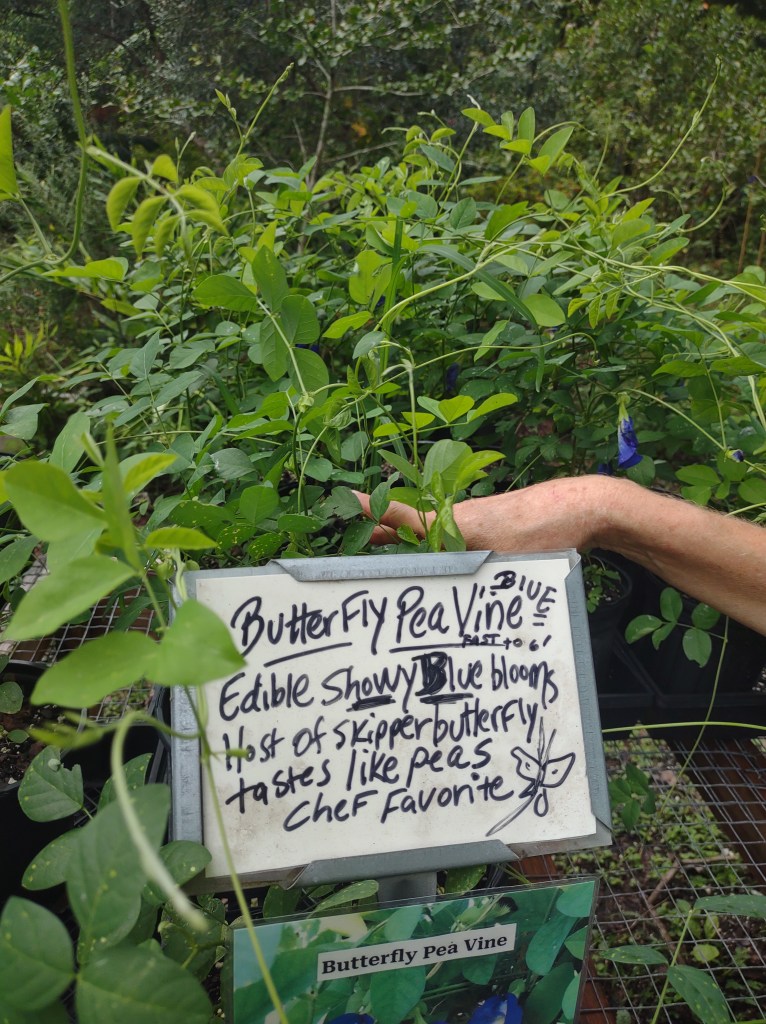 ButterFly Pea Vine BLUE
FAST to 6'
Edible Showy Blue blooms
Host of skipper butterfly
tastes like peas
CheF Favorite
Butterfly Pea Vine